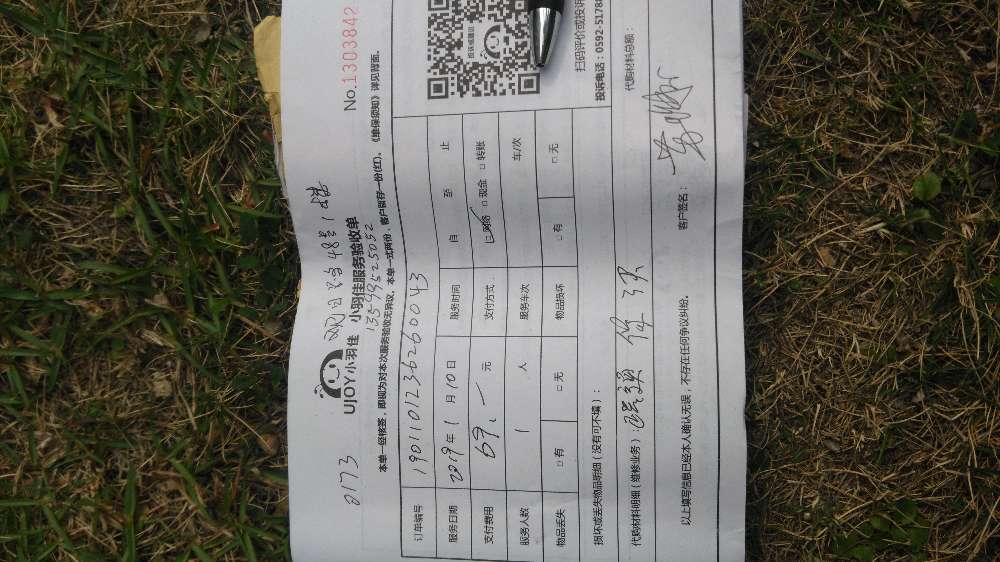 0173
UJOY小羽佳 小羽佳服务验收单
No.1303842
13599525052
本单一经核签,即视为对本次服务验收无异议。本单一式两份,客户留存一份(红)。《维保须知》详见背面。
订单编号 19011012362600043
服务日期 2019年1月10日 服务时间 自 至 止
支付费用 69.一 元 支付方式 ☑网络 □现金 □转账
服务人数 1 人 服务车次 车/次
物品丢失 □有 □无 物品损坏 □有 □无
损坏或丢失物品明细(没有可不填):
代购材料明细(维修业务):
代购材料总额:
以上填写信息已经本人确认无误,不存在任何争议纠纷。
客户签名:
投诉或建议
扫码评价或投诉
投诉电话:0592-5178